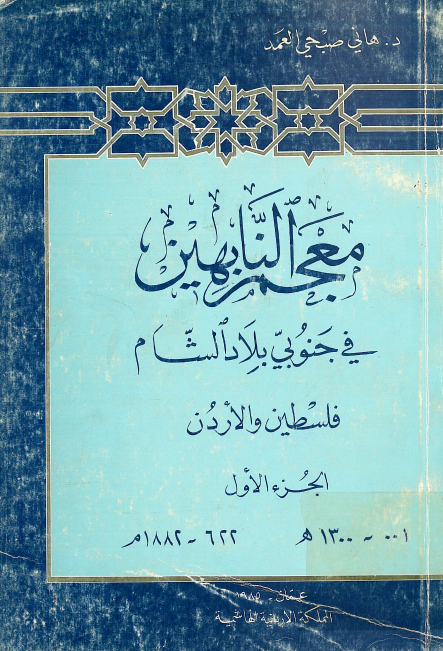 د. هاني صبحي العمد
معجم النَّابهين
في جنوبيّ بلاد الشّام
فلسطين والأردن
الجزء الأول
٠٠١ - ١٣٠٠ هـ ٦٢٢ - ١٨٨٢م
عمّان - ١٩٨٥
المملكة الأردنية الهاشمية